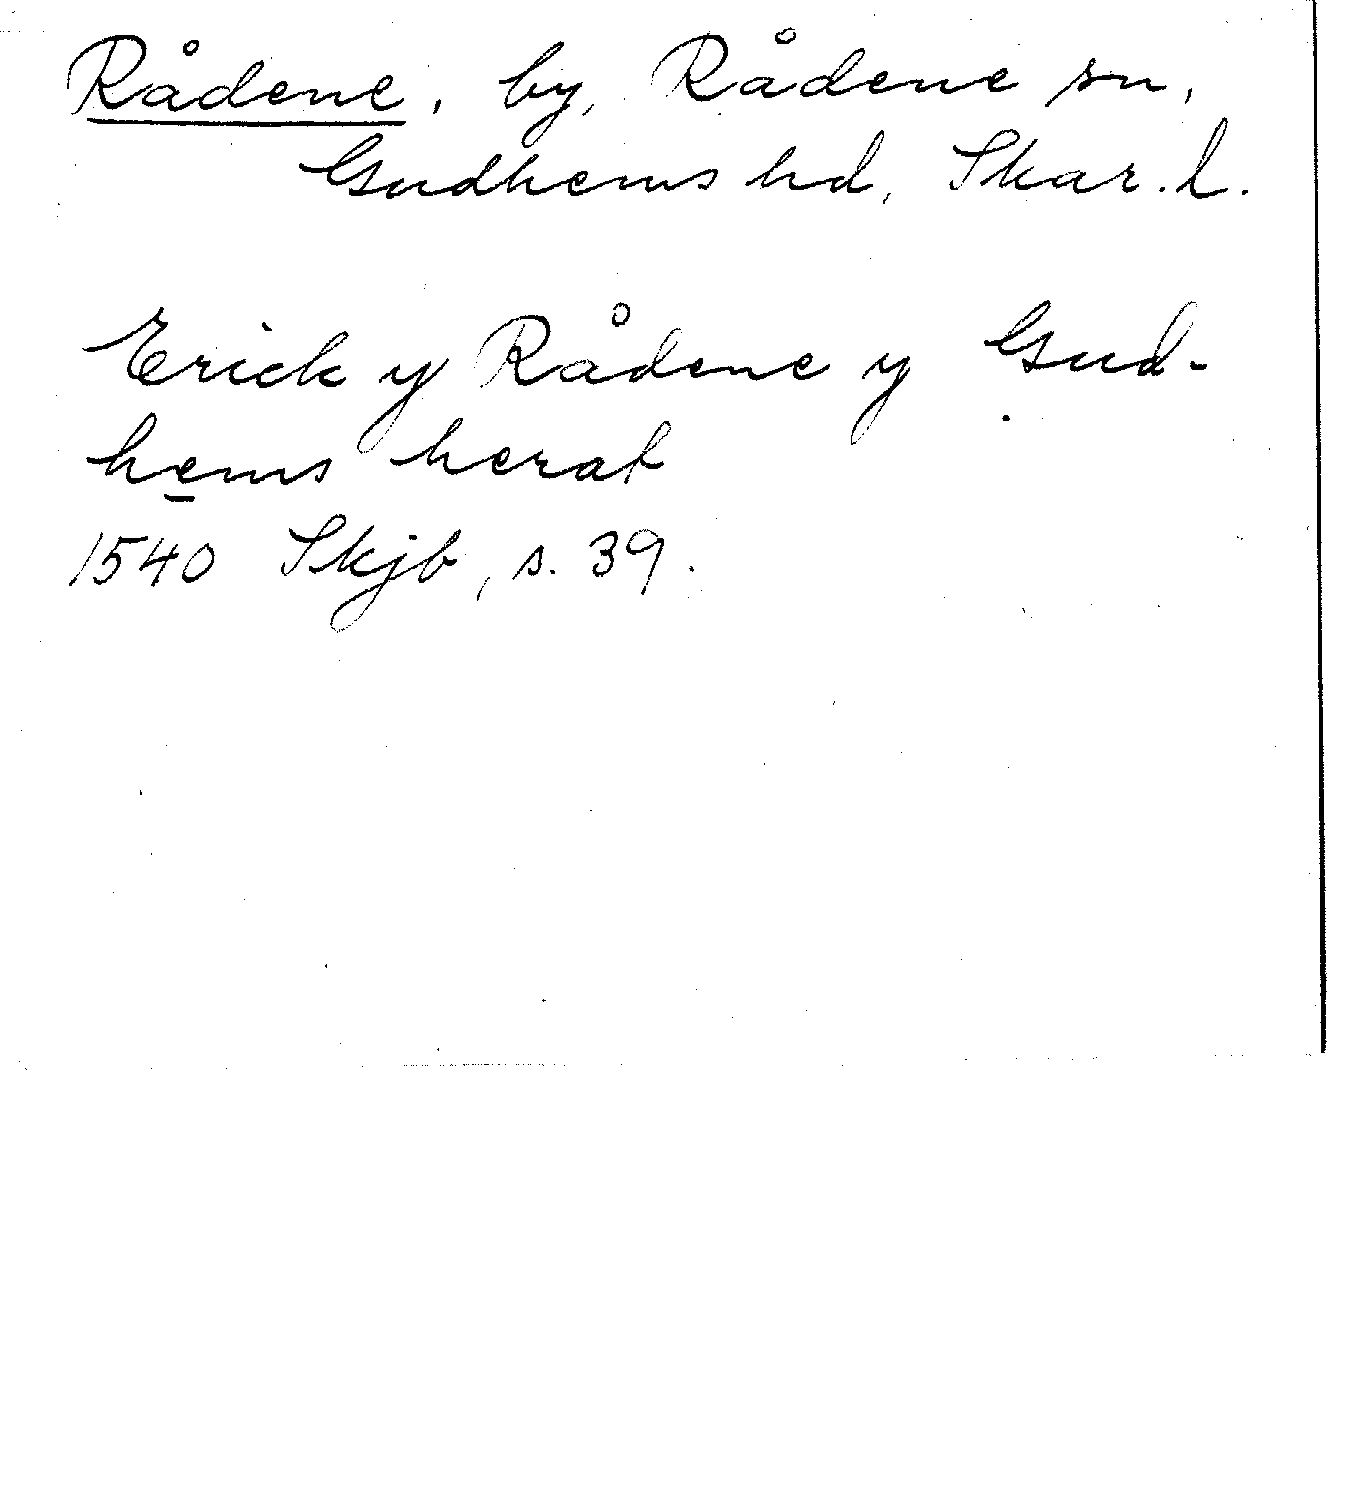 Rådene, by, Rådene sn,
Gudhems hd, Skar. l.
Erick y Rådene y Gud-
hems herat
1540 Skjb, s. 39.